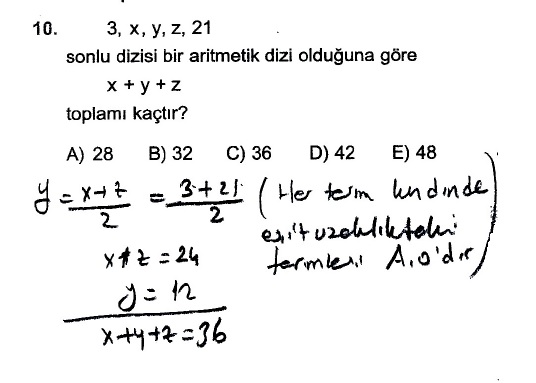 10. 3, x, y, z, 21
sonlu dizisi bir aritmetik dizi olduğuna göre
x + y + z
toplamı kaçtır?
A) 28 B) 32 C) 36 D) 42 E) 48
y = x+z/2 = 3+21/2 (Her terim kendinde
eşit uzaklıktaki
x+z = 24 terimleri A.O'dır)
y = 12
x+y+z=36